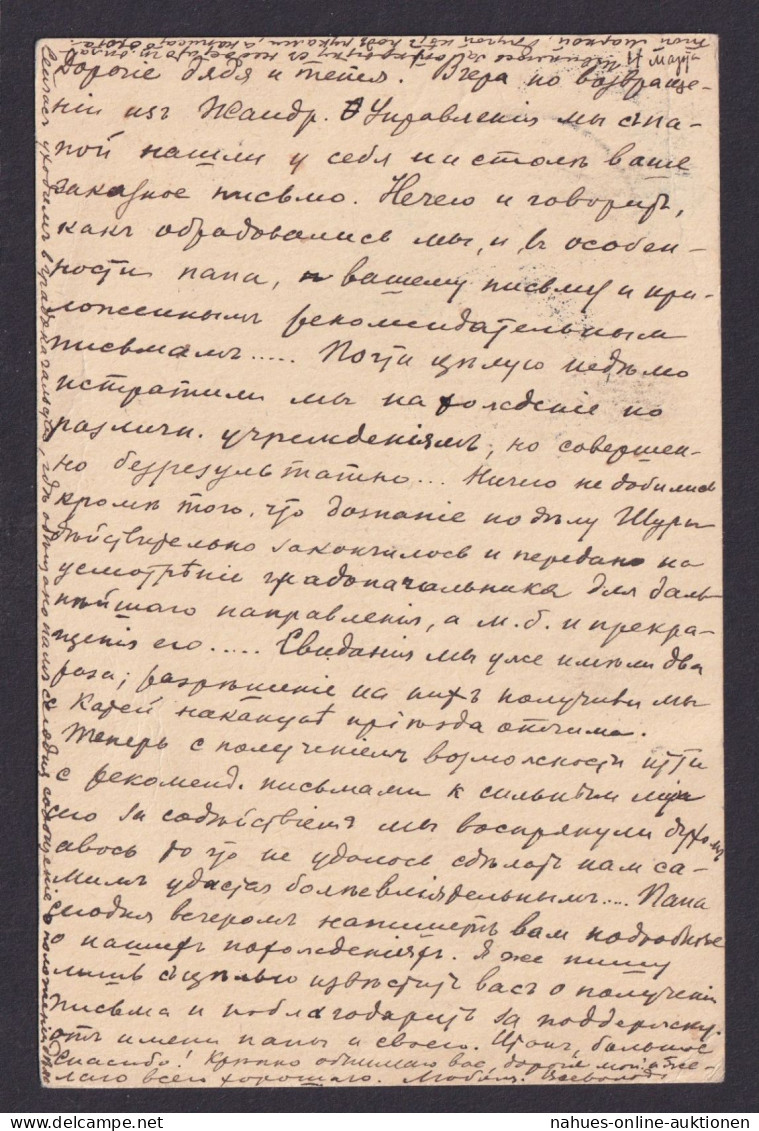 11 март
Дорогіе дядя и тетя. Вчера по возвраще-
ніи изъ Жандр. Управленія мы съ па-
пой нашли у себя на столѣ ваше
заказное письмо. Нечего и говорить,
какъ обрадовались мы, и въ особен-
ности папа, вашему письму и при-
ложеннымъ рекомендательнымъ
письмамъ..... Почти цѣлую недѣлю
истратили мы на хожденіе по
различн. учрежденіямъ, но совершен-
но безрезультатно... Ничего не добились
кромѣ того, что дознаніе по дѣлу Шуры
дѣйствительно закончилось и передано на
усмотрѣніе градоначальника для даль-
нѣйшаго направленія, а м. б. и прекра-
щенія его..... Свиданія мы уже имѣли два
раза; разрѣшеніе на нихъ получили мы
с Катей наканунѣ пріѣзда отчима.
Теперь с полученіемъ возможности итти
с рекоменд. письмами к сильнымъ міра
сего за содѣйствіемъ мы воспрянули духомъ
авось то что не удалось сдѣлать нам са-
мимъ удастся болѣе вліятельнымъ.... Папа
сегодня вечеромъ напишетъ вам подробнѣе
о нашихъ похожденіяхъ. Я же пишу
лишь съ цѣлью извѣстить васъ о полученіи
письма и поблагодарить за поддержку.
отъ имени папы и своего. Итакъ, большое
спасибо! Крѣпко обнимаю вас, дорогіе мои и же-
лаю всего хорошаго. Любящ. Всеволод
Сейчасъ уходимъ в градоначальство, гдѣ обѣщано намъ сегодня сообщеніе о положеніи дѣла
nahues-online-auktionen